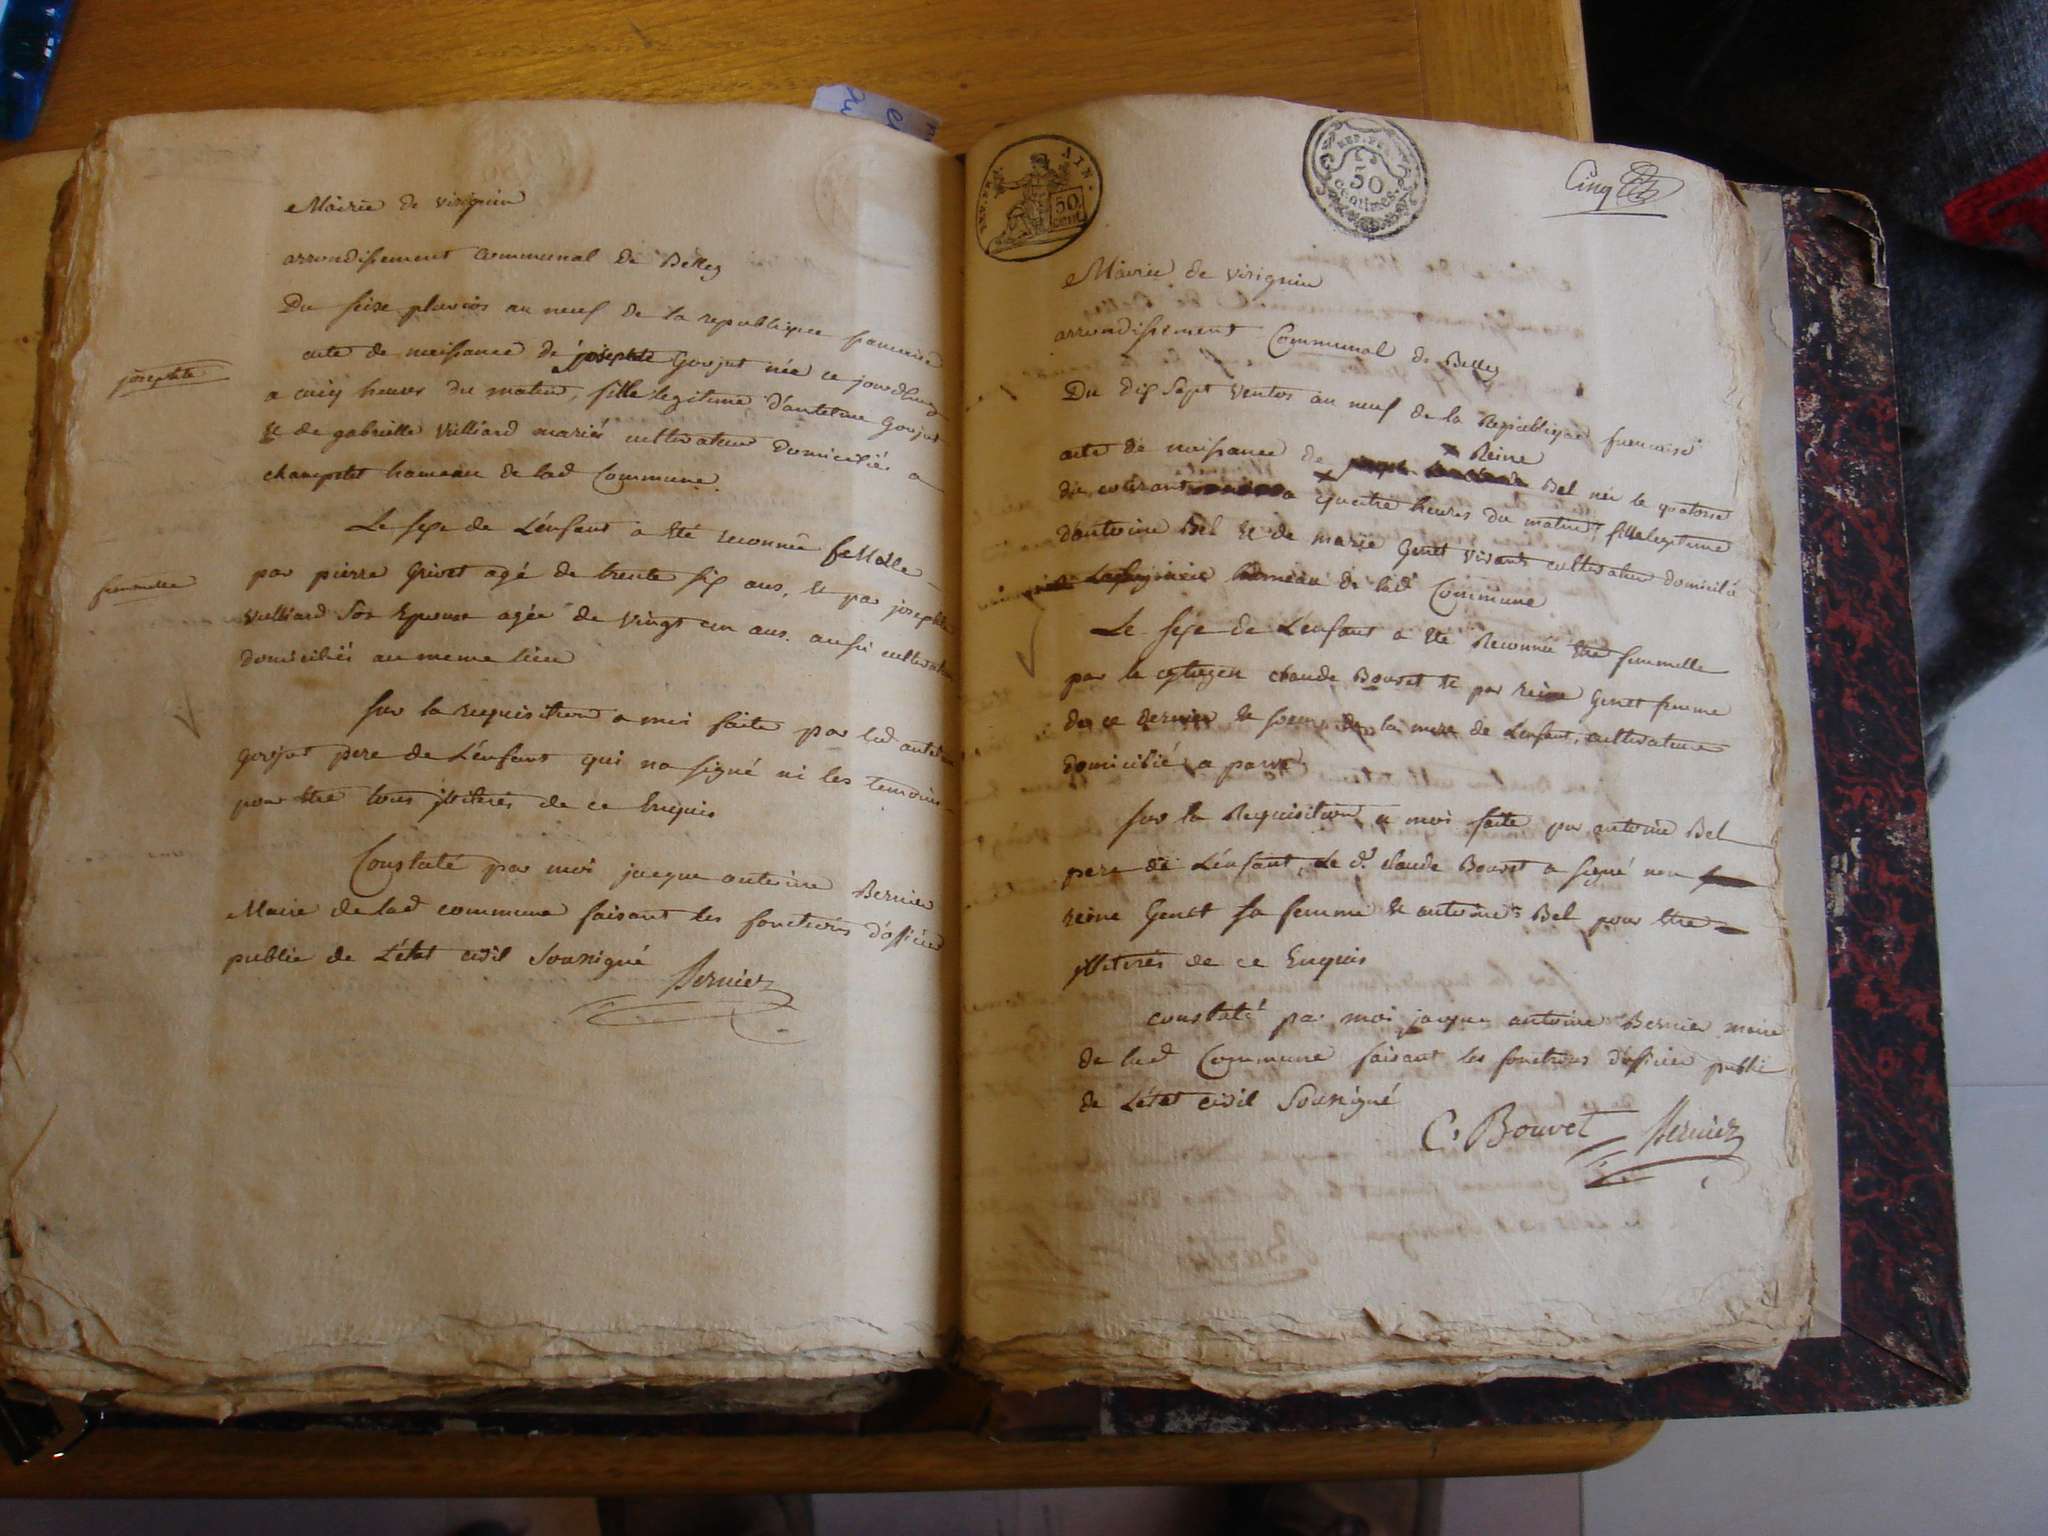 Mairie de virignin
arrondissement communal de Belley
Du seize pluvios an neuf de la republique francaise
acte de naissance de josephte Goujat née ce jourdhuy
a cinq heures du matin, fille legitime d'anteime Goujat
josephte
et de gabrielle Villiard mariés cultivateur domiciliés a
champtel hameau de lad Commune.
Le sexe de L'enfant a été reconnue femelle
par pierre Grivet agé de trente six ans, et par josephte
femmelle
Villiard son Epouse agée de vingt un ans. aussi cultivateur
domiciliés au meme lieu
sur la requisition a moi faite par led
goujat pere de L'enfant qui na signé ni les temoins
pour etre tous illiterés de ce Enquis
Constaté par moi jacque antoine Bernier
Maire de lad commune faisant les fonctions d'officier
public de L'état civil Sousigné
Bernier
REP. FRA. AIN.
50 cent.
REP. FRA.
50
centimes
Cinq
Mairie de virignin
arrondissement Communal de Belley
Du dix Sept Ventos an neuf de la Republique francaise
x Reine
acte de naissance de Bel née le quatorse
du courant a quatre heures du matin, fille legitime
d'antoine Bel et de marie Genet vivants cultivateur domicilié
hameau de lad Commune
Le sexe de L'enfant a été Reconnu etre femmelle
par le cytoyen claude Bouvet et par reine Genet femme
de ce dernier et soeur de la mere de L'enfant, cultivateurs
domicilié a
sur la Requisition a moi faite par antoine Bel
pere de L'enfant, Le d.t claude Bouvet a signé non
reine Genet sa femme et antoine Bel pour etre
illiterés de ce Enquis
constaté par moi jacque antoine Bernier maire
de lad Commune faisant les fonctions d'officier public
de L'état civil Sousigné
C. Bouvet Bernier